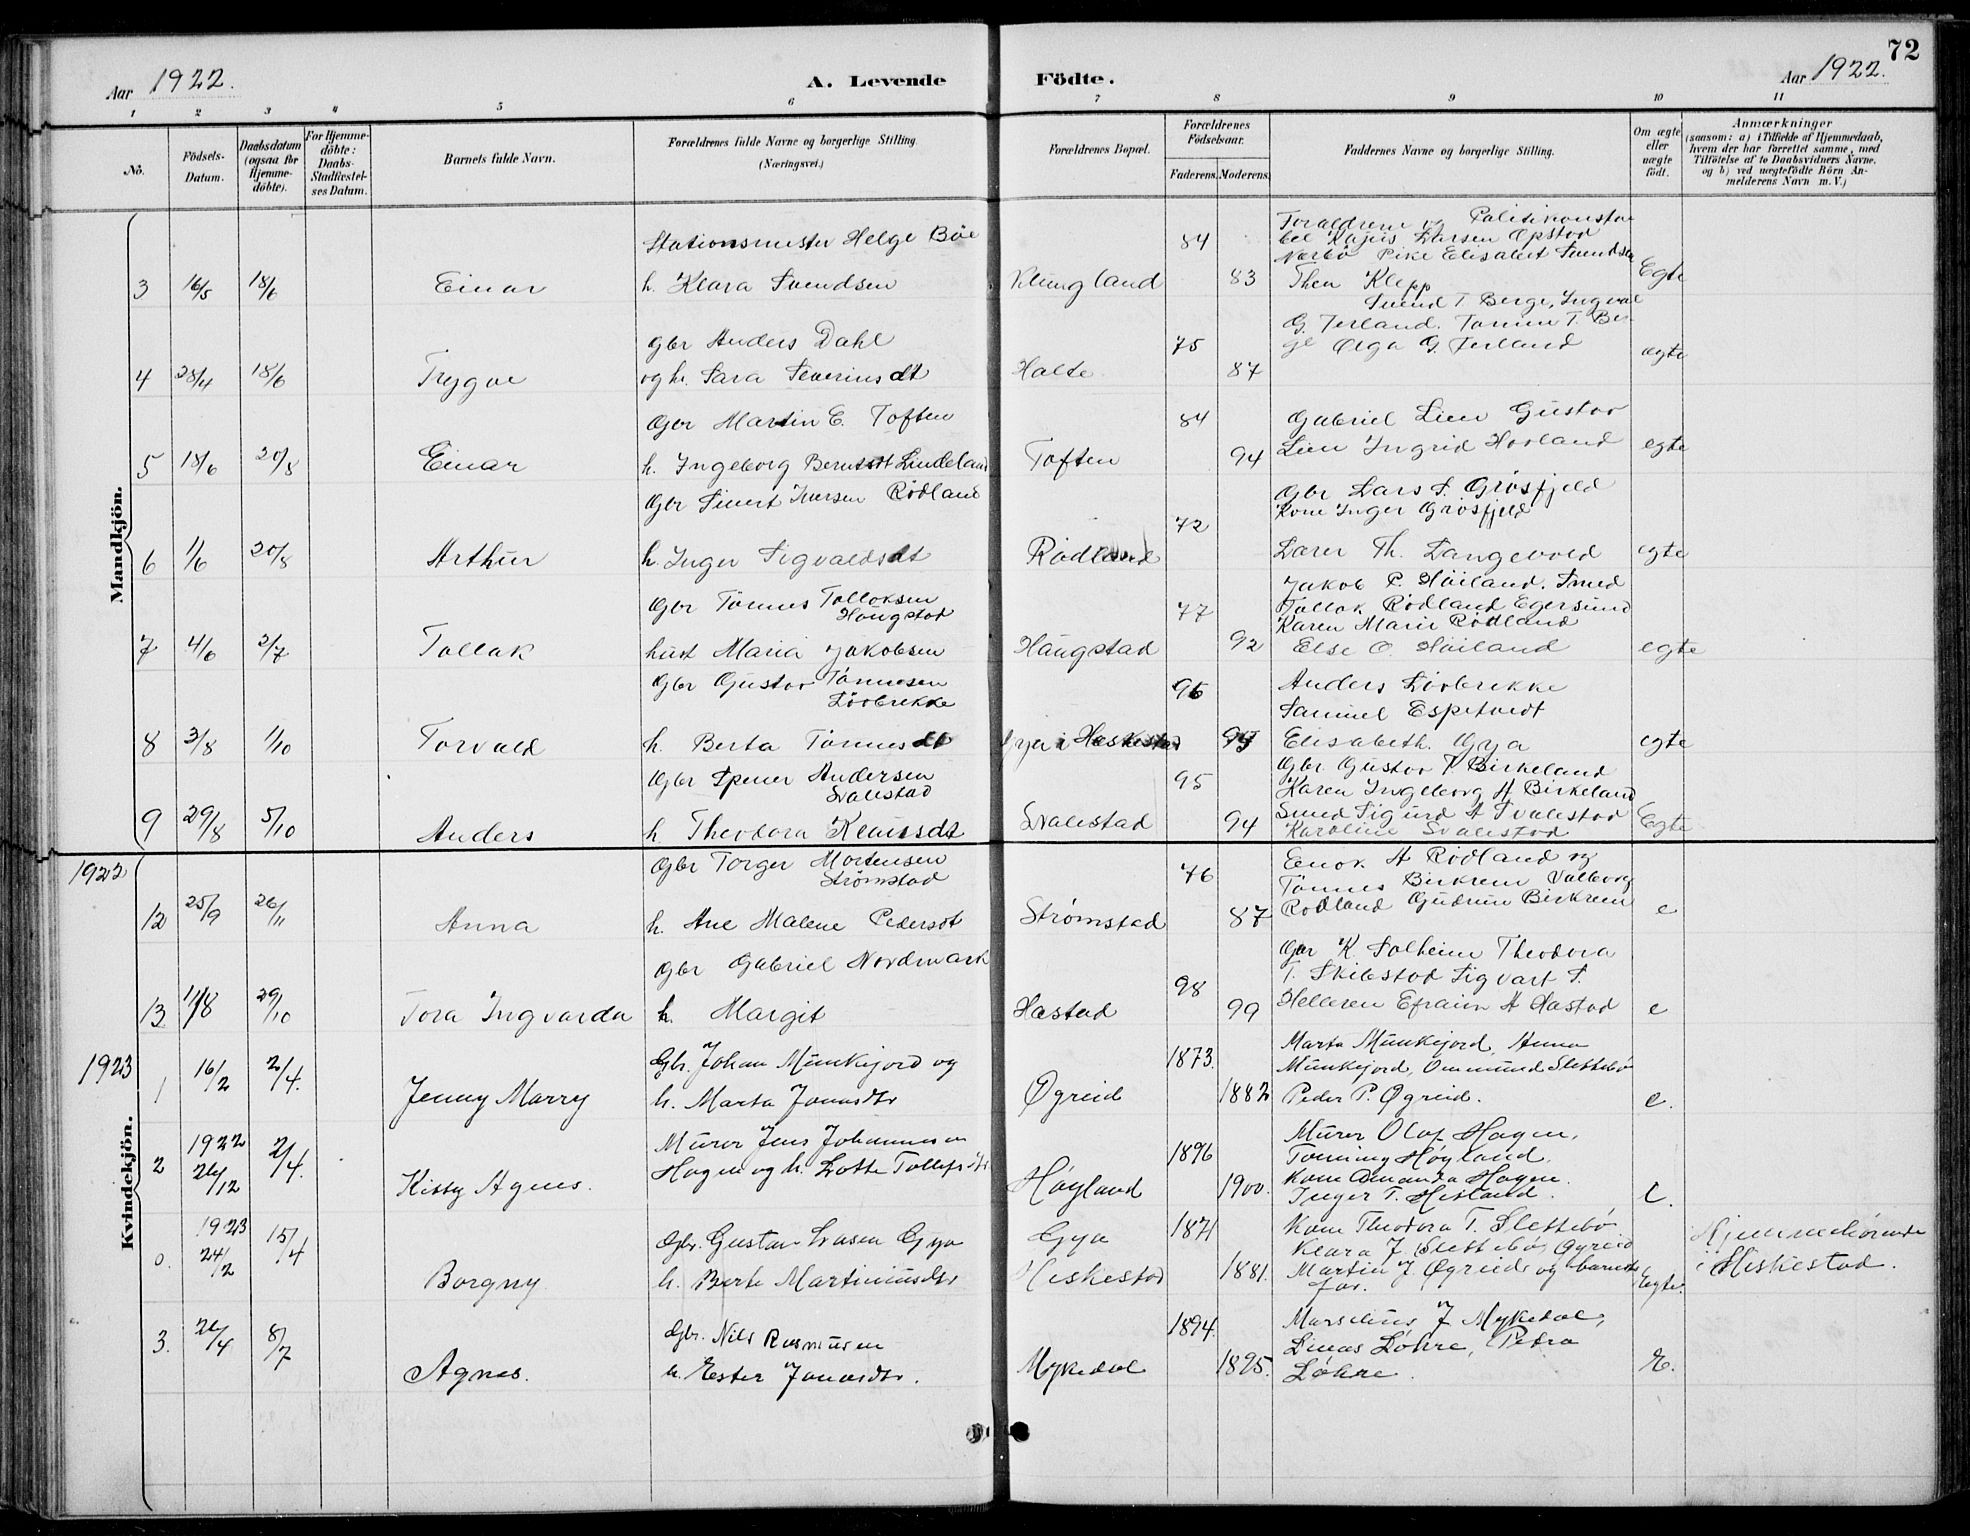 72
Aar 1922.
A. Levende
Födte.
Aar 1922.
1 2 3 4 5 6 7 8 9 10 11
No.
Födsels-Datum.
Daabsdatum (ogsaa for Hjemme-döbte).
For Hjemme-döbte: Daabs-Stadfæstel-ses Datum.
Barnets fulde Navn.
Forældrenes fulde Navne og borgerlige Stilling (Næringsvei.)
Forældrenes Bopæl.
Forældrenes Födselsaar.
Faderens. Moderens.
Faddernes Navne og borgerlige Stilling.
Om ægte eller uægte födt.
Anmærkninger
(saasom: a) i Tilfælde af Hjemmedaab,
hvem der har forrettet samme, med
Tilföielse af to Daabsvidners Navne.
og b) ved uægtefödte Börn An-
melderens Navn m. V.)
Mandkjön.
3 16/5 18/6 Einar
Stationsmester Helge Böe
h. Klara Svendsen
Klungland 84 83
Forældrene og Politikonsta-
bel Kajus Larsen Opstad
Nærbö Pike Elisabet Svendsen
Thea Klepp
Egte
4 28/4 18/6 Trygve
Gbr Anders Dahl
og h. Sara Severinsdt
Holte 75 87
Svend T. Berge, Ingval
G. Ferland. Tomine T. Ber-
ge Olga G. Ferland
ægte
5 18/6 20/8 Einar
Gbr Martin E. Toften
h. Ingeborg Berntsdt Lindeland
Toften 84 94
Gabriel Lien Gustav
Lien Ingrid Hovland
egte
6 1/6 20/8 Arthur
Gbr Sivert Iversen Rödland
h. Inger Sigvaldsdt
Rödland 72
Gbr Lars S. Grösfjeld
Kone Inger Grösfjeld
Lærer Th. Langevold
egte
7 4/6 2/7 Tollak
Gbr Tönnes Tollaksen
Haugstad
hust Maria Jakobsen
Haugstad 77 92
Jakob P. Höiland. Smed
Tollak Rödland Egersund
Karen Marie Rödland
Else O. Höiland
egte
8 3/8 1/10 Torvald
Gbr Gustav Tönnesen
Lövbrekke
h. Berta Tönnesdt
Gya i Heskestad
Anders Lövbrekke
Samuel Espetvedt
Elisabeth Gya
egte
9 29/8 5/10 Anders
Gbr Spener Andersen
Svalestad
h. Theodora Klausdt
Svalestad 95 94
Gbr. Gustav T Birkeland
Karen Ingeborg A Birkeland
Smed Sigurd A Svalestad
Karoline Svalestad
Egte
Kvindekjön.
1922
12 25/9 26/11 Anna
Gbr Torger Mortensen
Strømstad
h. Ane Malene Pedersdt
Strømstad 76 87
Enok A Rödland og
Tönnes Birkrem Valborg
Rödland Gudrun Birkrem
e
13 11/8 29/10 Tora Ingvarda
Gbr Gabriel Nordmark
h. Margit
Hæstad 98 99
Gbr K. Solheim Theodora
T. Skibestad Sigvart S.
Helleren Efraim A Hæstad
e
1923
1 16/2 2/4. Jenny Marry
Gbr. Johan Munkejord og
h. Marta Jonasdtr
Øgreid 1873. 1882
Marta Munkejord, Anna
Munkejord, Ommund Slettebø
Peder P. Øgreid.
e.
2 1922 26/12 2/4. Kitty Agnes.
Murer Jens Johannesen
Hagen og h. Lotte Tollefsdtr
Høyland 1896 1900.
Murer Olaf Hagen,
Tonning Høyland.
Kone Amanda Hagen.
Inger T. Hisland.
e.
0. 1923 24/2 15/4 Borgny
Gbr. Gustav Gya
h. Berte Martiniusdtr
Gya
Heskestad 1871 1881.
Kone Theodora T. Slettebø
Klara J. Slettebø, Øgreid
Martin J. Øgreid og barnets
far.
Egte.
Hjemmehørende
i Heskestad.
3. 26/4 8/7 Agnes.
Gbr. Nils Rasmusen
h. Ester Jonasdtr.
Mykedal 1894. 1895.
Marselius J Mykedal,
Linas Løhre, Petra
Løhre.
E.